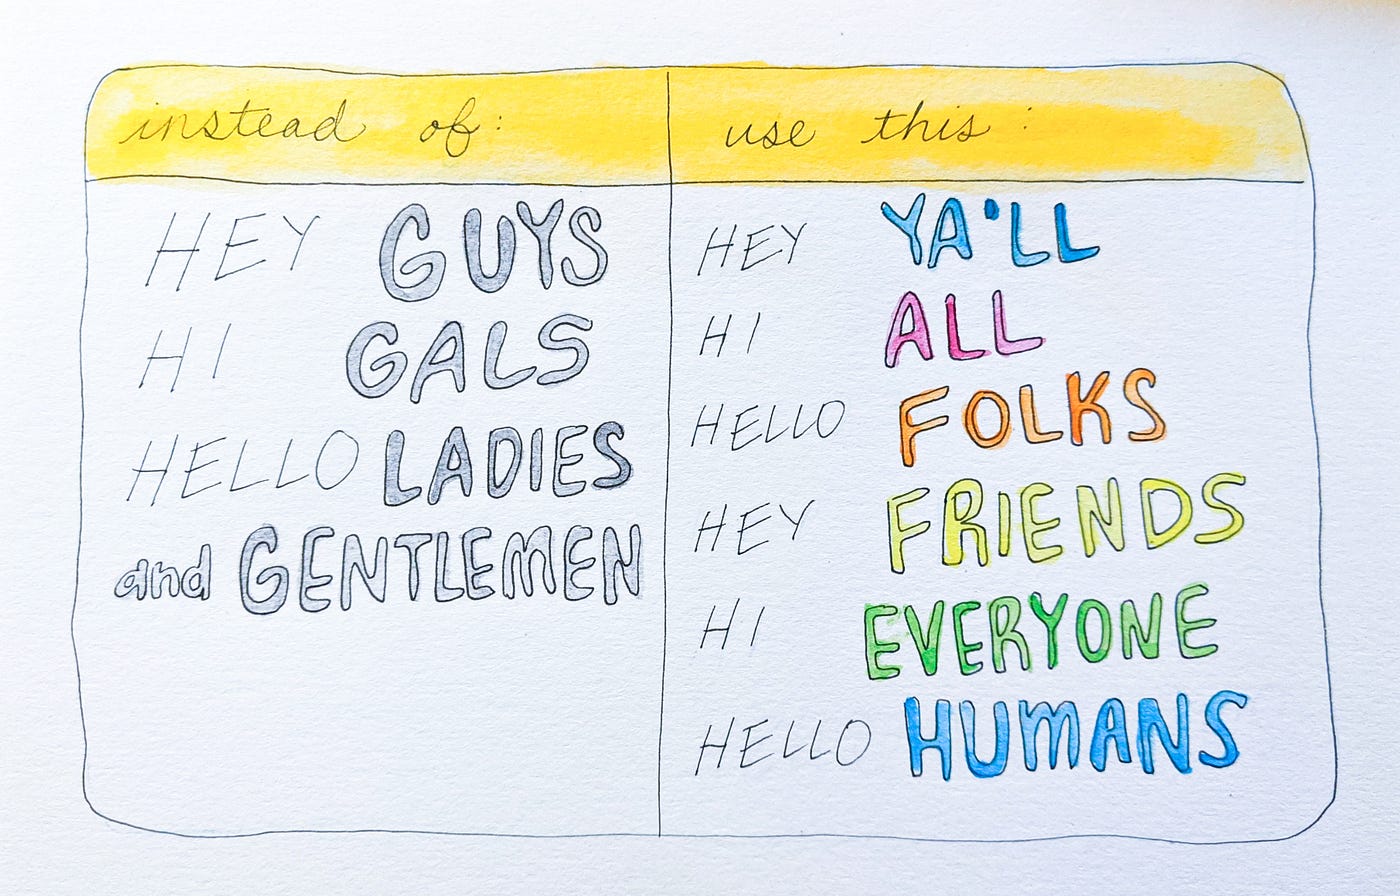 instead of:
HEY GUYS
HI GALS
HELLO LADIES
and GENTLEMEN
use this:
HEY YA'LL
HI ALL
HELLO FOLKS
HEY FRIENDS
HI EVERYONE
HELLO HUMANS